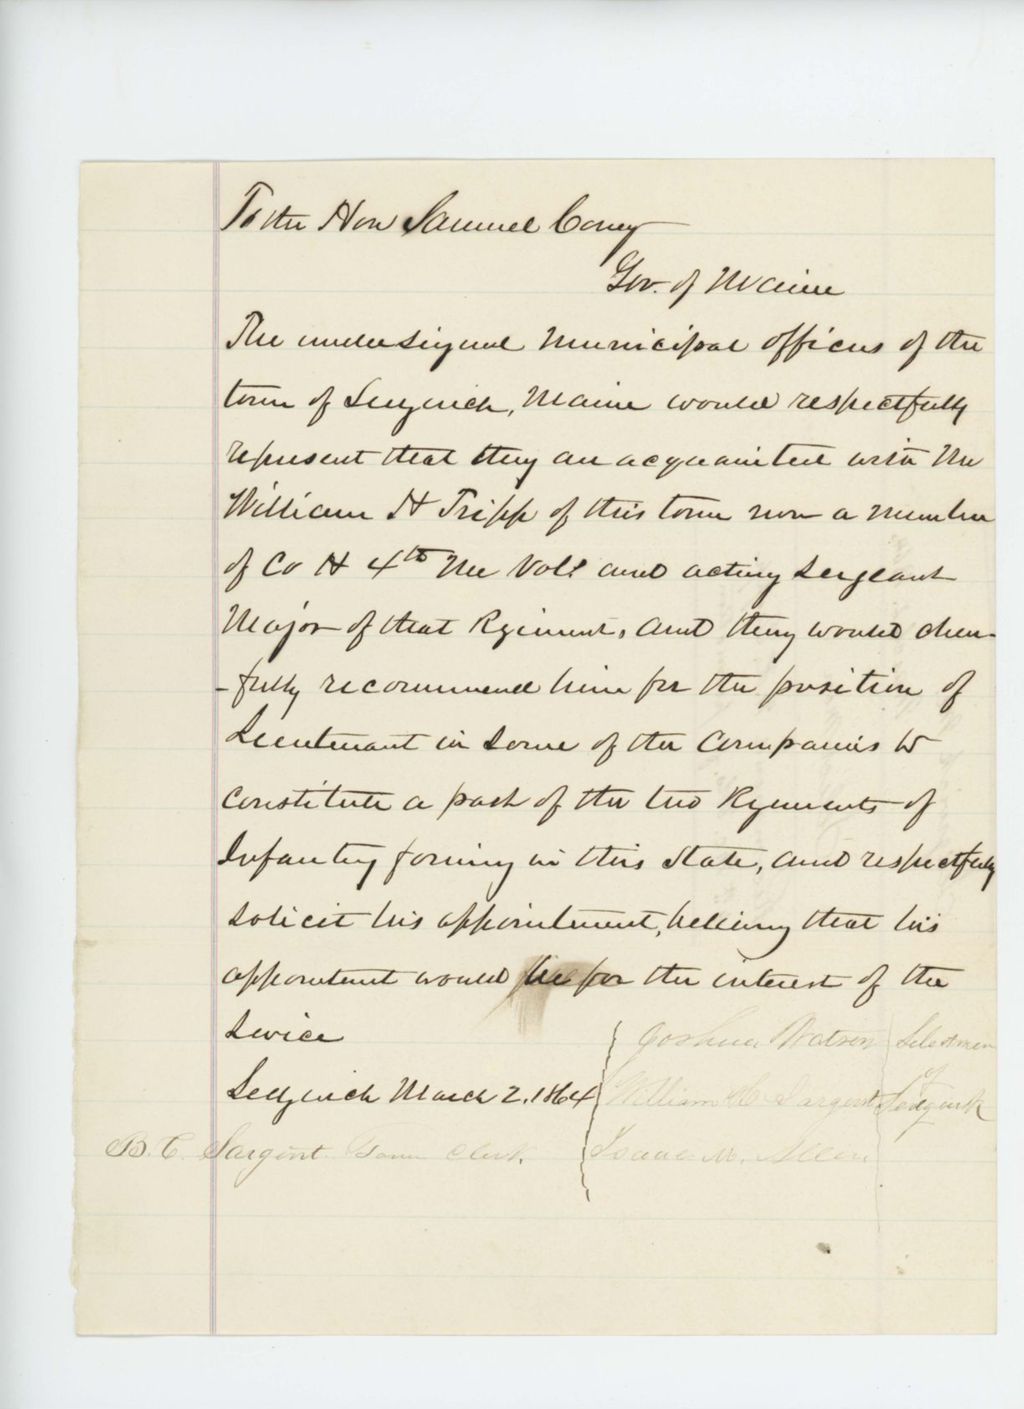 To the Hon Samuel Cony
Gov. of Maine
The undersigned Municipal officers of the
town of Sedgwick, Maine would respectfully
represent that they are acquainted with Mr
William H Tripp of this town now a member
of Co H 4th Me Vols and acting Sergeant
Major of that Regiment, and they would cheer-
-fully recommend him for the position of
Lieutenant in some of the Companies to
constitute a part of the two Regiments of
Infantry forming in this State, and respectfully
solicit his appointment, believing that his
appointment would be for the interest of the
Service
Joshua Watson Selectmen
Sedgwick March 2. 1864 William H. Sargent of Sedgwick
B. C. Sargent Town Clerk. Isaac M. Allen